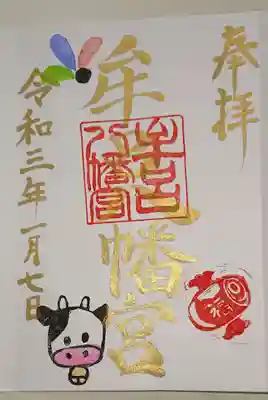 奉拝
牟呂八幡宮
牟呂八幡宮
福
令和三年一月七日